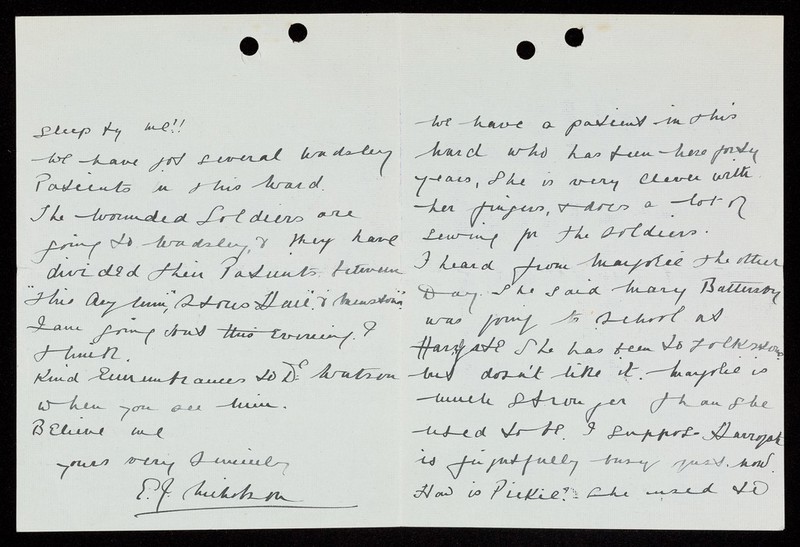 sleep by me!!
We have got several Wadsley
Patients in this Ward.
The Wounded Soldiers are
going to Wadsley, & they have
divided their Patients between
"this Asylum", Stone
I am going out this Evening. I
think.
Kind Remembrances to Dr Watson
when you see him.
Believe me
yours very sincerely
E. J. Nicholson
We have a patient in this
Ward who has been here forty
years, She is very clever with
her fingers, & does a lot of
sewing for the soldiers.
I heard from Marjorie the other
Day. She said Mary Battersby
was going to School at
Harrogate She has been to Folkstone
but dosn't like it. Marjorie is
much Stronger than she
used to be. I suppose Harrogate
is frightfully busy just now.
How is Pickie? She used to